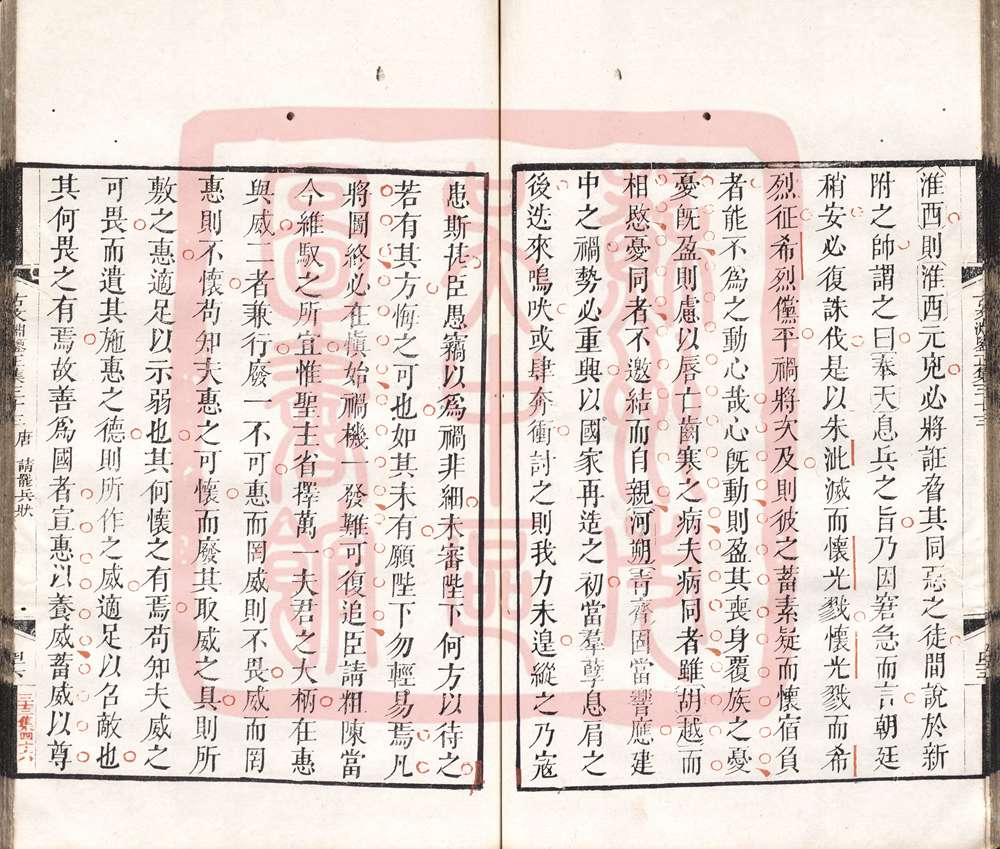 淮西則淮西元兇必將誑脅其同惡之徒間說於新
附之帥謂之曰奉天息兵之旨乃因窘急而言朝廷
稍安必復誅伐是以朱泚滅而懷光戮懷光戮而希
烈征希烈儻平禍將次及則彼之蓄素疑而懷宿負
者能不為之動心哉心既動則盈其喪身覆族之憂
憂既盈則慮以唇亡齒寒之病夫病同者雖胡越而
相愍憂同者不邀結而自親河朔青齊固當響應建
中之禍勢必重興以國家再造之初當羣孽息肩之
後迭來鳴吠或肆奔衝討之則我力未遑縱之乃寇
患斯甚臣愚竊以為禍非細未審陛下何方以待之
若有其方悔之可也如其未有願陛下勿輕易焉凡
將圖終必在慎始禍機一發難可復追臣請粗陳當
今維馭之所宜惟聖主省擇萬一夫君之大柄在惠
與威二者兼行廢一不可惠而罔威則不畏威而罔
惠則不懷苟知夫惠之可懷而廢其取威之具則所
敷之惠適足以示弱也其何懷之有焉苟知夫威之
可畏而遺其施惠之德則所作之威適足以召敵也
其何畏之有焉故善為國者宣惠以養威蓄威以尊
唐 請罷兵狀